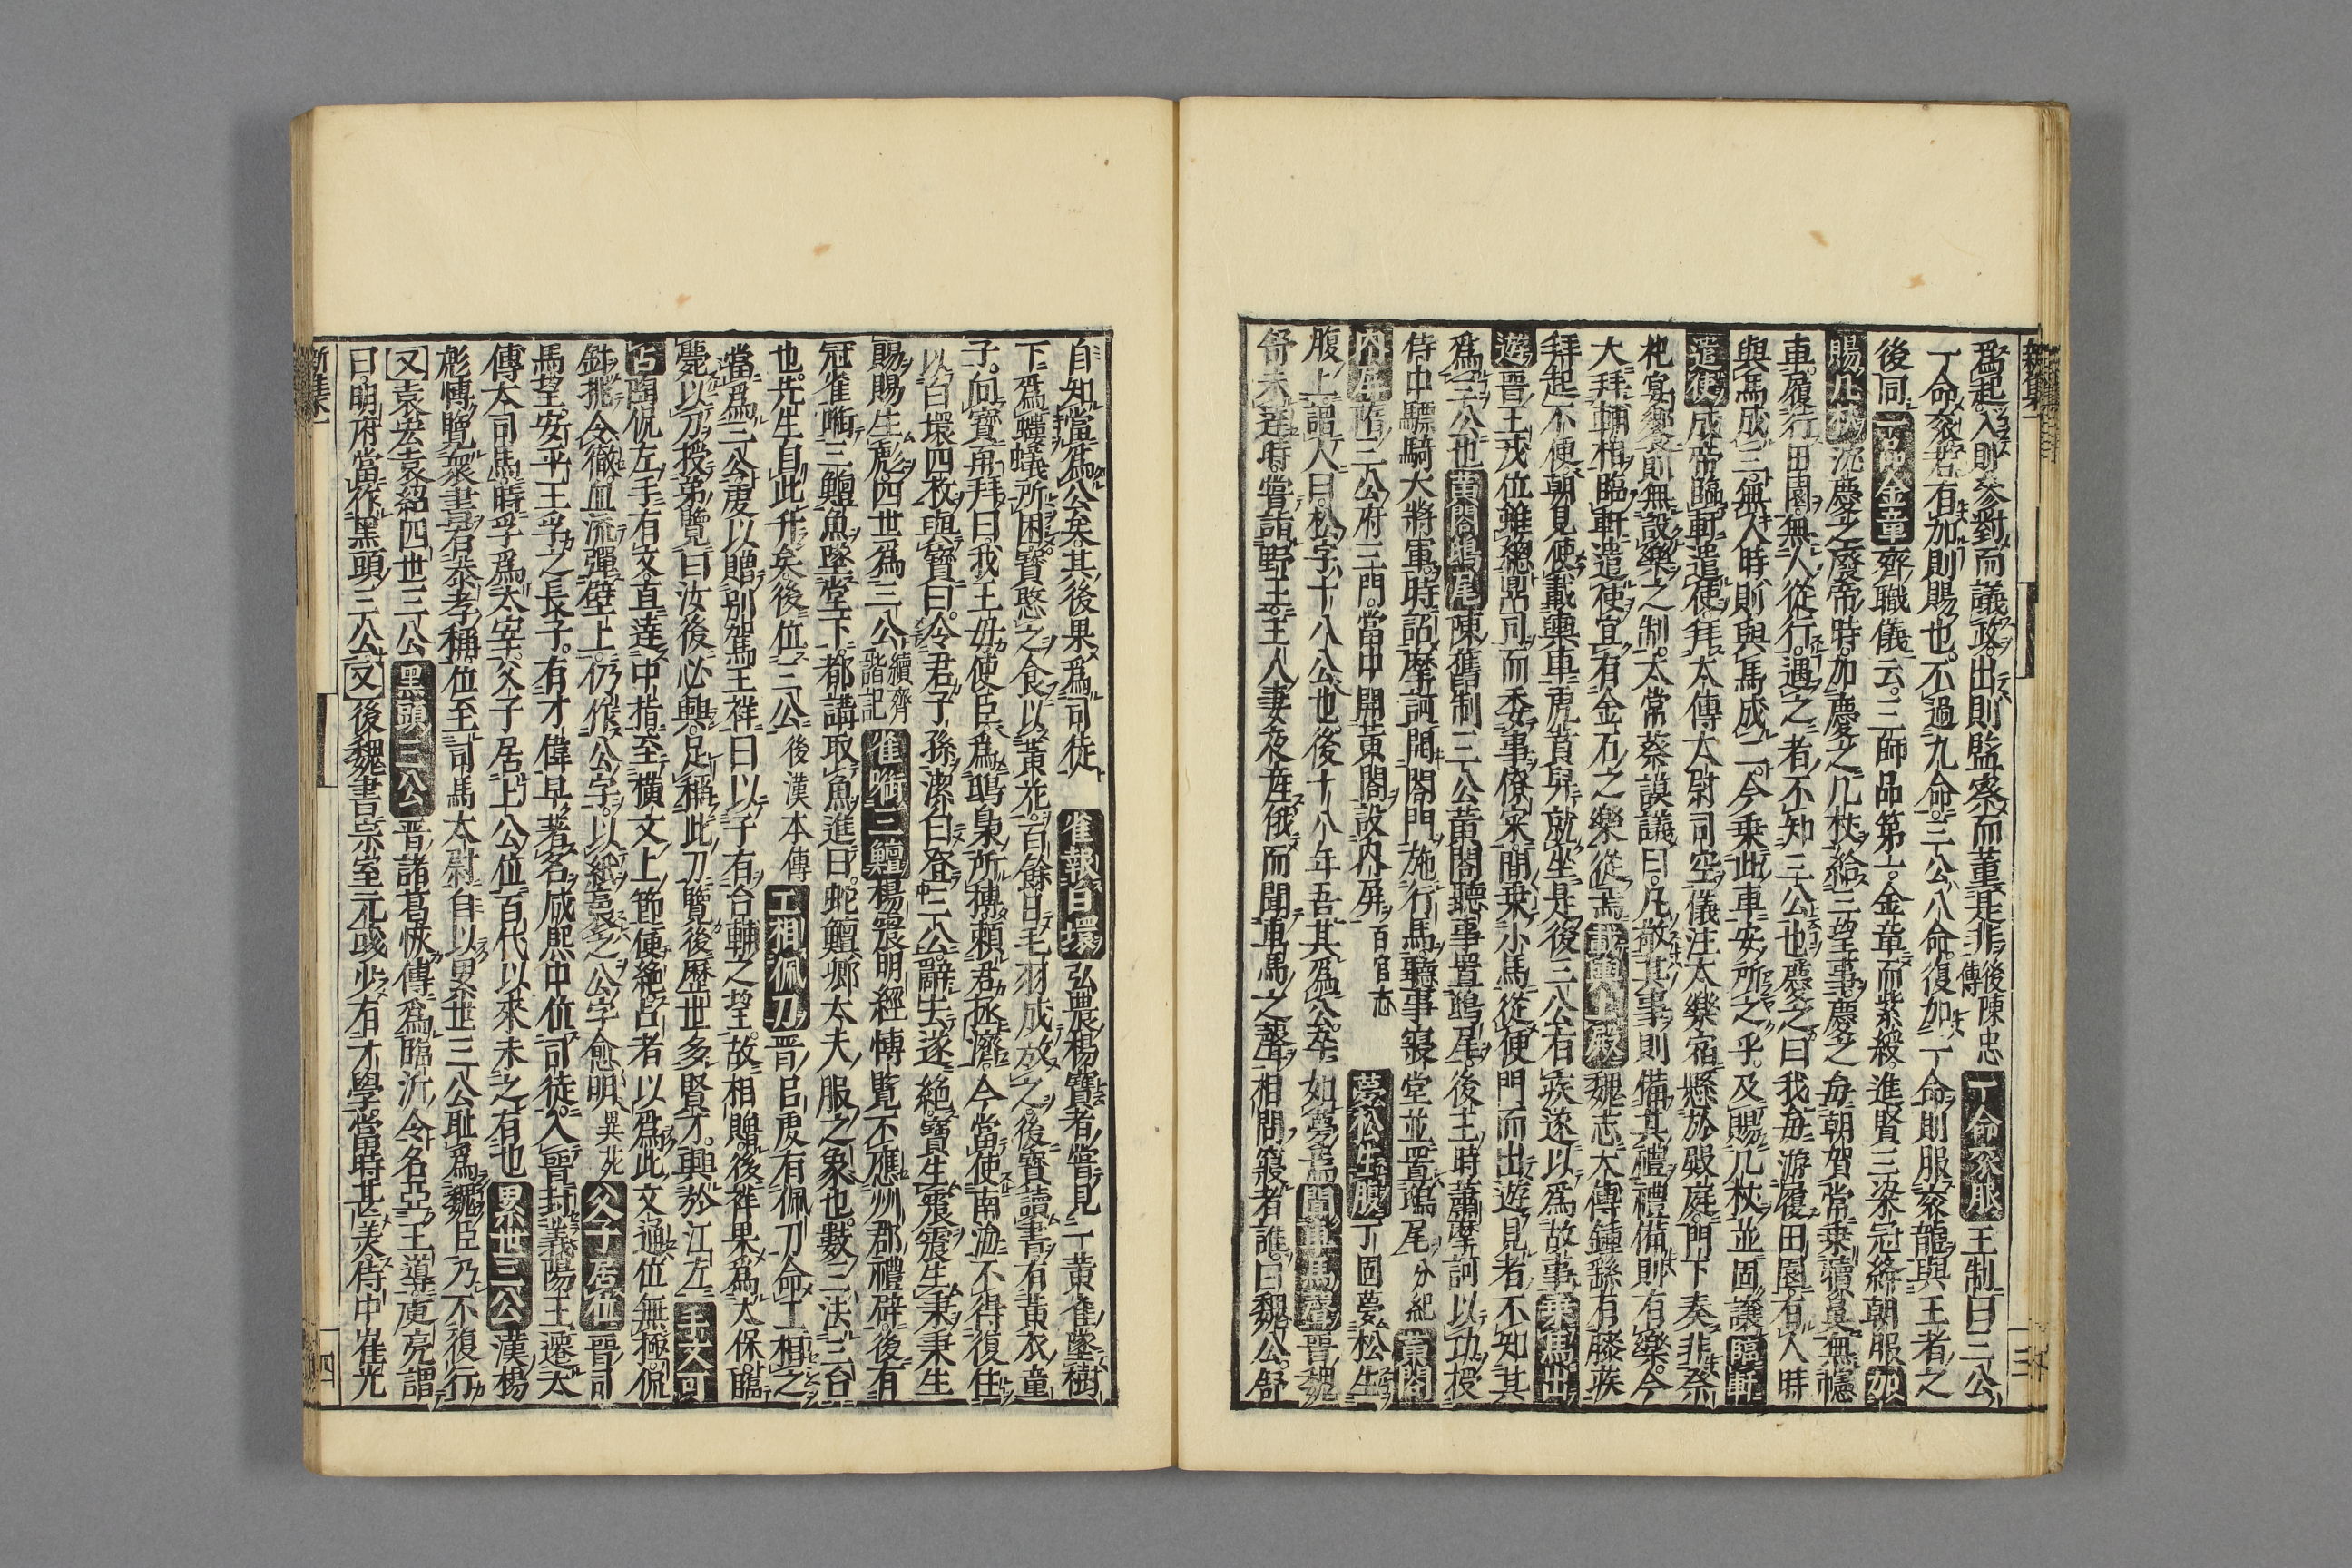 爲起入則參對而議政出則監察而董是非後陳忠傳一命衮服王制曰三公
一命衮若有加則賜也不過九命三公八命復加一命則服衮龍與王者之
後同一品金章齊職儀云三師品第一金章而紫綬進賢三梁冠絳朝服加
賜几杖沈慶之廢帝時加慶之几杖給三望車慶之每朝賀常乗犢鼻無幰
車履行田園無人從行遇之者不知三公也慶之曰我每游履田園有人時
與馬成三無人時則與馬成二今乗此車安所之乎及賜几杖並固讓臨軒
遣使成帝臨軒遣使拜太傅太尉司空儀注太樂宿懸於殿庭門下奏非祭
祀宴饗則無設樂之制太常蔡謨議曰凡敬其事則備其禮禮備則有樂今
大拜輔相臨軒遣使宜有金石之樂從焉載輿上殿魏志太傅鍾繇有膝疾
拜起不便朝見使載輿車虎賁舁就坐是後三公有疾遂以爲故事乗馬出
遊晋王戎位雖緫鼎司而委事僚寀間乗小馬從便門而出遊見者不知其
爲三公也黄閤鴟尾陳舊制三公黄閤聽事置鴟尾後主時蕭摩訶以功授
侍中驃騎大將軍時詔摩訶開閤門施行馬聽事寢堂並置鴟尾分紀黄閤
内屏隋三公府三門當中開黄閤設内屏百官志夢松生腹丁固夢松生
腹上謂人曰松字十八公也後十八年吾其爲公卒如夢焉聞車馬聲晋魏
舒未達時嘗詣野王主人妻夜産俄而聞車馬之聲相問寢者誰曰魏公舒
自知當爲公矣其後果爲司徒雀報白環弘農楊寶者嘗見一黄雀墜樹
下爲螻蟻所困寶愍之食以黄花百餘日毛羽成放之後寶讀書有黄衣童
子向寶再拜曰我王母使臣爲鴟梟所摶頼君拯濟今當使南海不得復住
以白環四枚與寶曰令君子孫潔白登三公辭去遂絶寶生震震生秉秉生
賜賜生彪四世爲三公續齊諧記雀銜三鱣楊震明經博覧不應州郡禮辟後有
冠雀銜三鱣魚墜堂下都講取魚進曰蛇鱣卿太夫服之象也數三法三台
也先生自此升矣後位三公後漢本傳工相佩刀晋吕虔有佩刀命工相之
當爲三公虔以贈別駕王祥曰以子有台輔之望故相贈後祥果爲太保臨
薨以刀授弟覽曰汝後必興足稱此刀覽後歴世多賢才興於江左手文可
占陶侃左手有文直達中指至横文上節便絶占者以爲此文通位無極侃
針挑令徹血流彈壁上仍作公字以紙裛之公字愈明異苑父子居位晋司
馬望安平王孚之長子有才偉早著名咸熙中位司徒入晋封義陽王遷太
傅大司馬時孚爲太宰父子居上公位百代以來未之有也累世三公漢楊
彪博覽衆書有恭孝稱位至司馬太尉自以累世三公耻爲魏臣乃不復行
又袁宏袁紹四世三公黒頭三公晋諸葛恢傳爲臨沂令名亞王導庾亮謂
曰明府當作黒頭三公又後魏書宗室元彧少有才學當時甚美侍中崔光
三
四